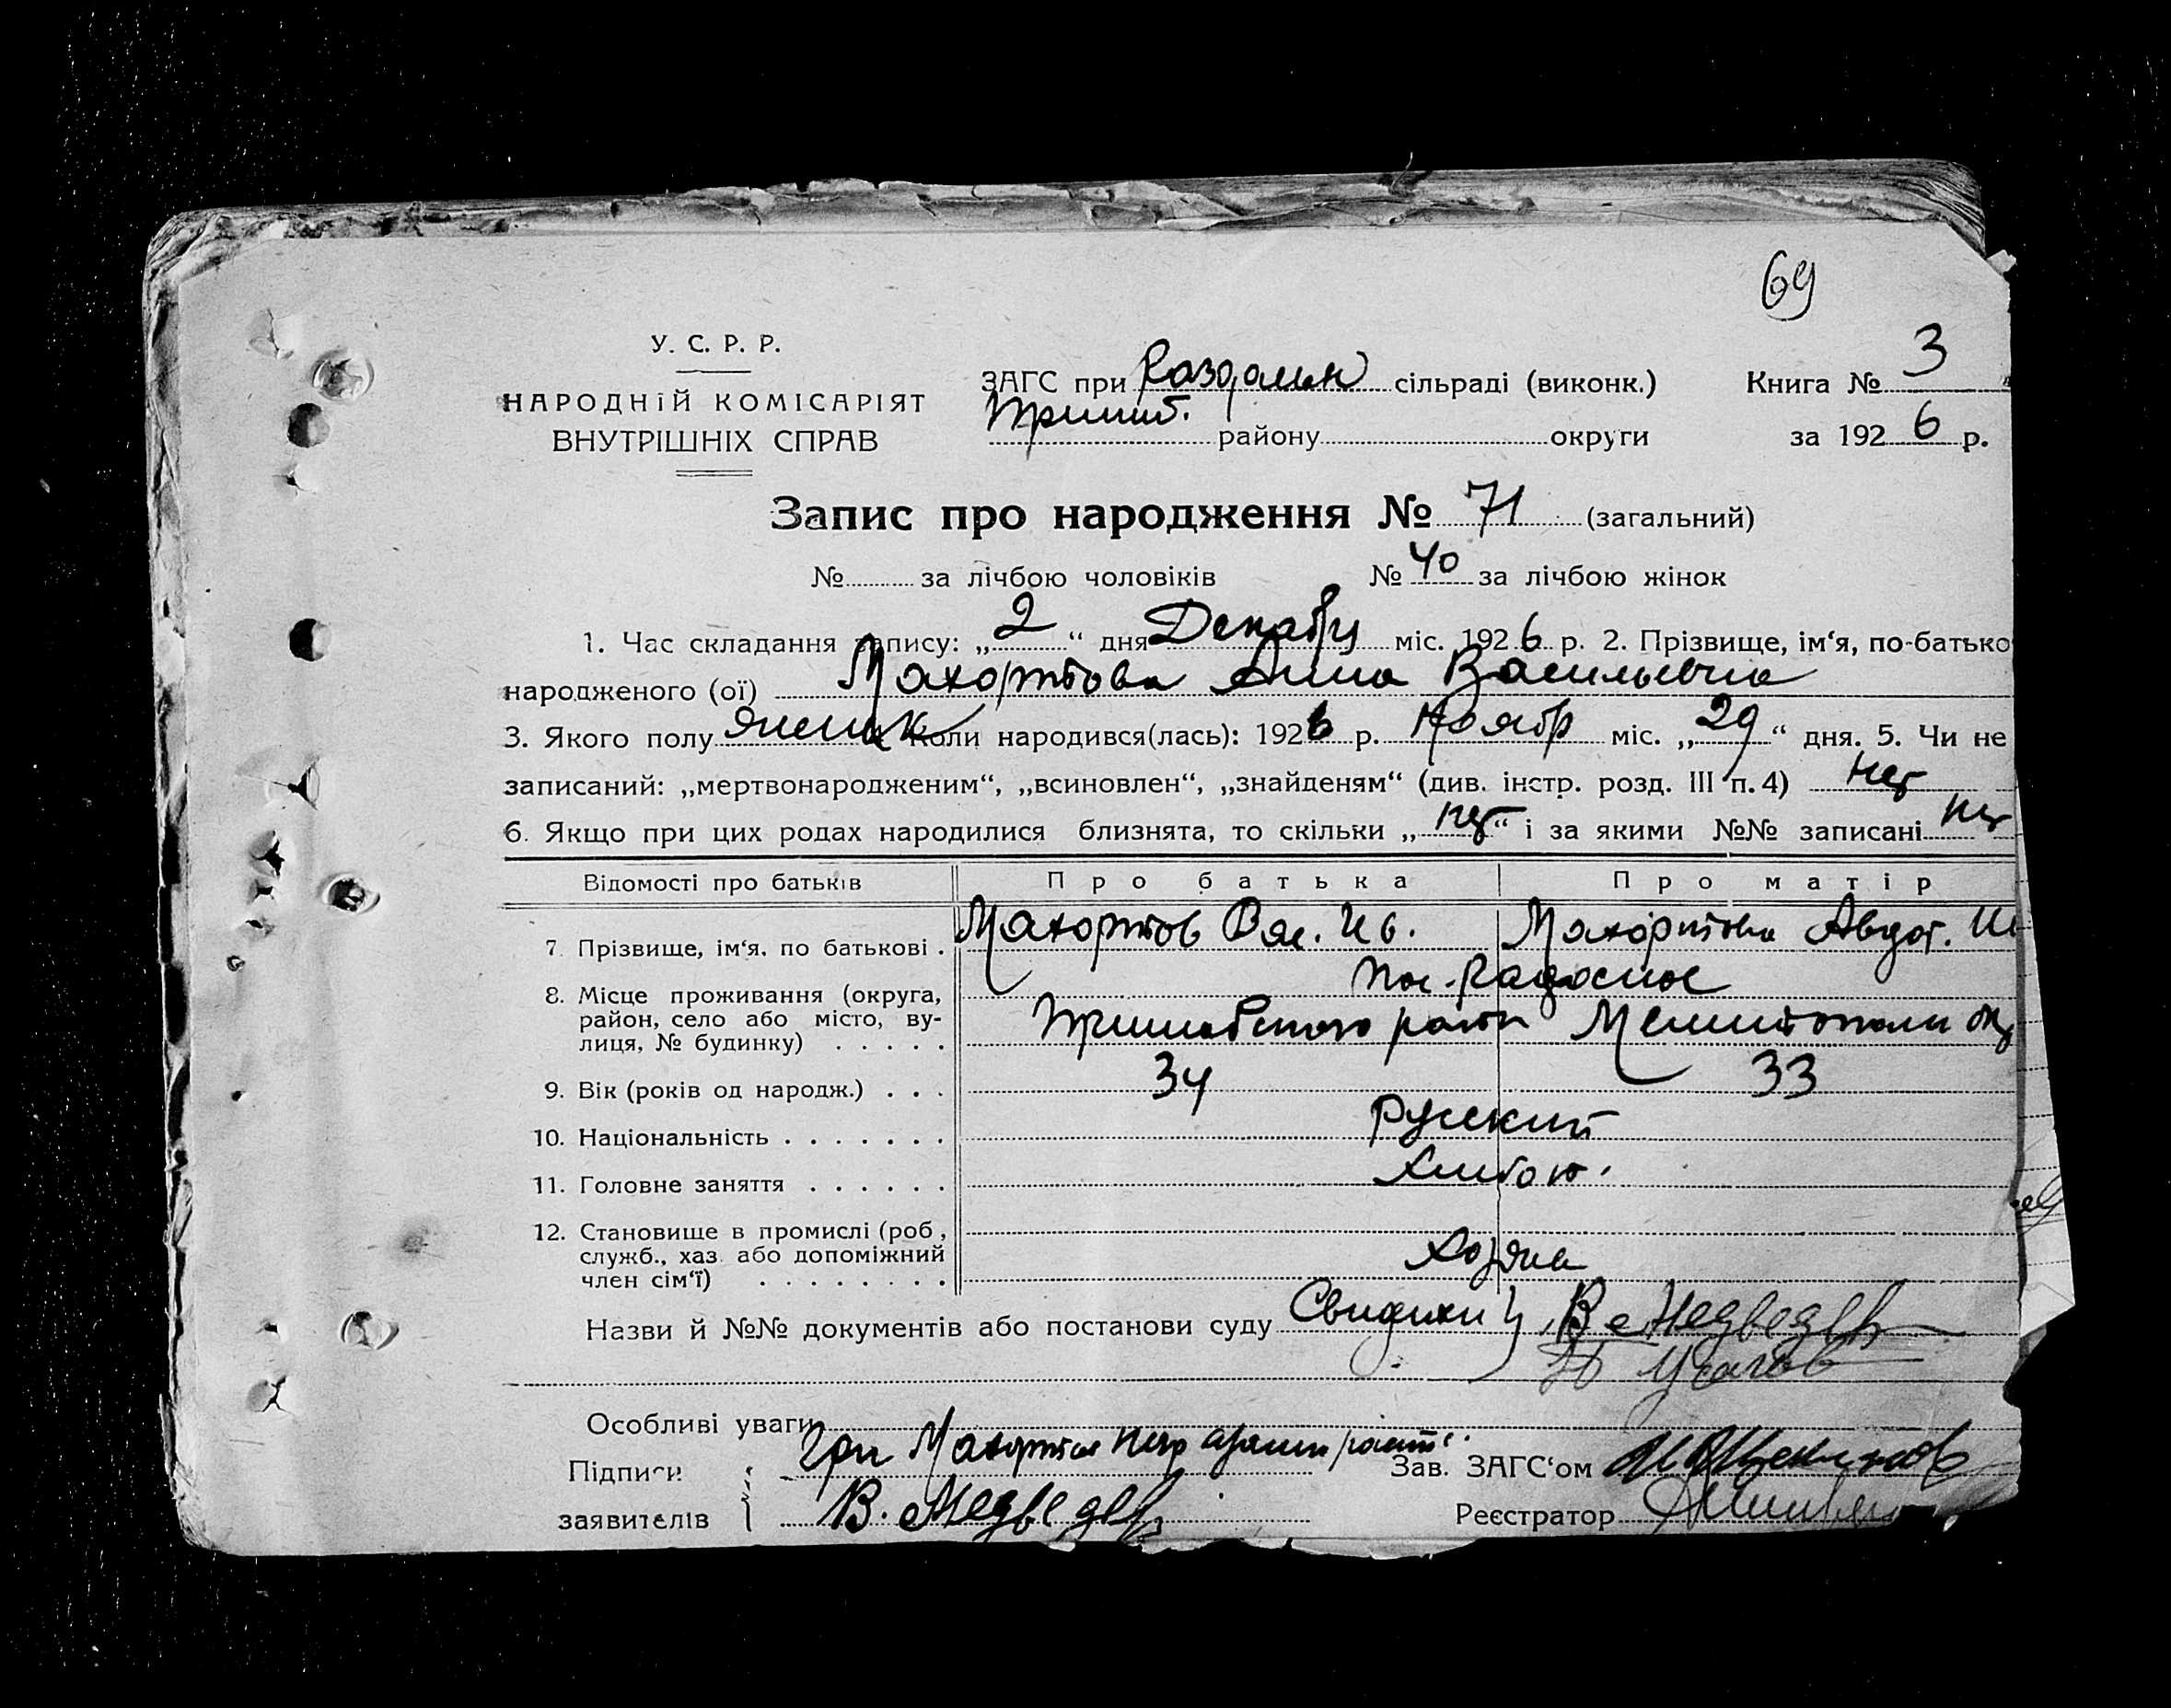 69
У. С. Р. Р.
НАРОДНІЙ КОМІСАРІЯТ
ВНУТРІШНІХ СПРАВ
ЗАГС при Раздольн сільраді (виконк.)
Пришиб. району округи
Книга № 3
за 1926 р.
Запис про народження № 71 (загальний)
№ за лічбою чоловіків № 40 за лічбою жінок
1. Час складання запису: „2“ дня Декабр міс. 1926 р. 2. Прізвище, ім‘я, по-батько
народженого (ої) Махортова Анна Васильевна
3. Якого полу женск Коли народився(лась): 1926 р. Ноябр міс. „29“ дня. 5. Чи не
записаний: „мертвонародженим“, „всиновлен“, „знайденям“ (див. інстр. розд. III п. 4) нет
6. Якщо при цих родах народилися близнята, то скільки „нет“ і за якими №№ записані нет
Відомості про батьків Про батька Про матір
7. Прізвище, ім‘я. по батькові . Махортов Вас. Ив. Махортова Авдот.
8. Місце проживання (округа, пос.
район, село або місто, ву- Пришибского Мелитополь
лиця, № будинку) . . . . .
9. Вік (років од народж.) . . . 34 33
10. Національність . . . . . . . Русский
11. Головне заняття . . . . . .
12. Становище в промислі (роб.,
служб., хаз. або допоміжний Хозяин
член сім‘ї) . . . . . . . .
Назви й №№ документів або постанови суду В. Медведев
Усачов
Особливі уваги
Підписи гр Махортов
заявителів В. Медведев
Зав. ЗАГС‘ом
Реєстратор